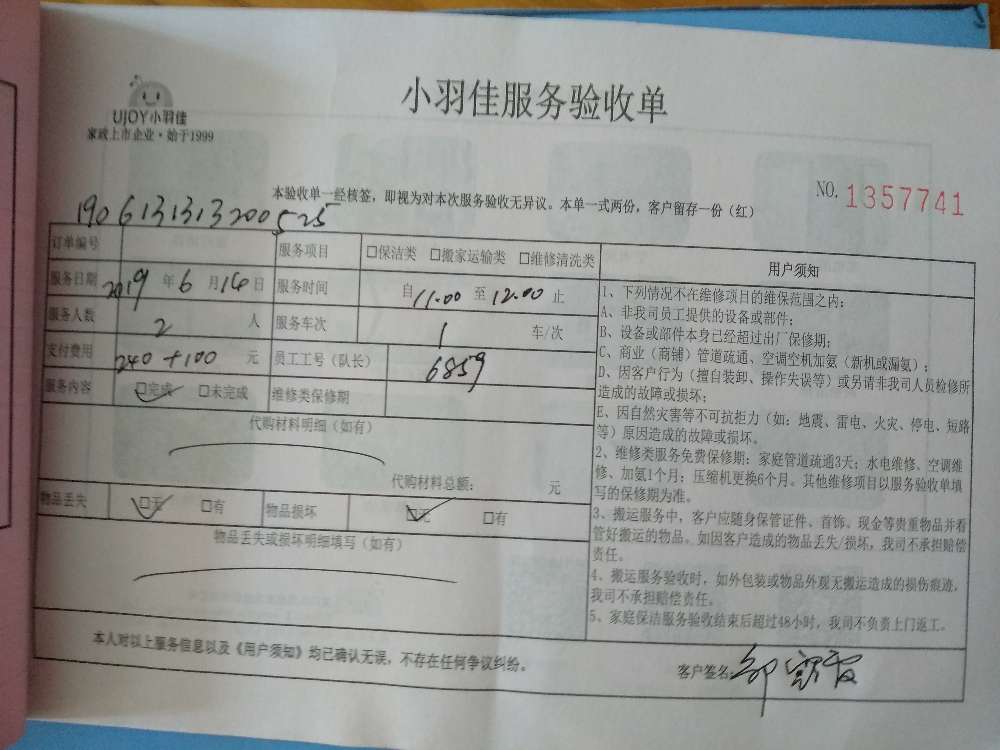 UJOY小羽佳
家政上市企业·始于1999
小羽佳服务验收单
本验收单一经核签，即视为对本次服务验收无异议。本单一式两份，客户留存一份（红）
NO. 1357741
190613131320 0525
订单编号 服务项目 □保洁类 □搬家运输类 □维修清洗类
服务日期 2019 年 6 月 14 日 服务时间 自 11:00 至 12:00 止
服务人数 2 人 服务车次 1 车/次
支付费用 240+100 元 员工工号（队长） 6859
服务内容 □完成 □未完成 维修类保修期
代购材料明细（如有）
代购材料总额： 元
物品丢失 □无 □有 物品损坏 □无 □有
物品丢失或损坏明细填写（如有）
用户须知
1、下列情况不在维修项目的维保范围之内；
A、非我司员工提供的设备或部件；
B、设备或部件本身已经超过出厂保修期；
C、商业（商铺）管道疏通、空调空机加氨（新机或漏氨）；
D、因客户行为（擅自装卸、操作失误等）或另请非我司人员检修所
造成的故障或损坏；
E、因自然灾害等不可抗拒力（如：地震、雷电、火灾、停电、短路
等）原因造成的故障或损坏。
2、维修类服务免费保修期：家庭管道疏通3天；水电维修、空调维
修、加氨1个月；压缩机更换6个月。其他维修项目以服务验收单填
写的保修期为准。
3、搬运服务中，客户应随身保管证件、首饰、现金等贵重物品并看
管好搬运的物品。如因客户造成的物品丢失/损坏，我司不承担赔偿
责任。
4、搬运服务验收时，如外包装或物品外观无搬运造成的损伤痕迹，
我司不承担赔偿责任。
5、家庭保洁服务验收结束后超过48小时，我司不负责上门返工。
本人对以上服务信息以及《用户须知》均已确认无误，不存在任何争议纠纷。
客户签名：